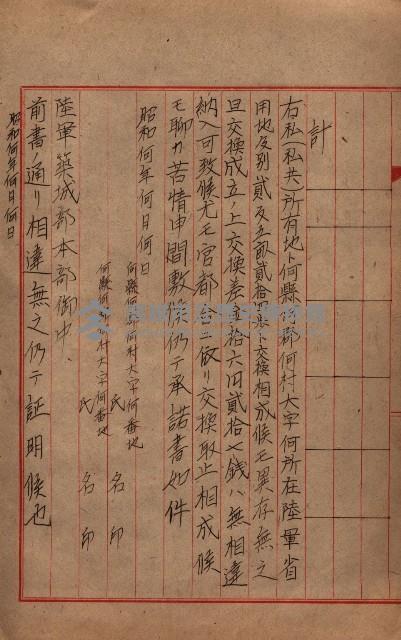 計
右私(私共)所有地ト何縣何郡何村大字何所在陸軍省
用地反別貳反五畝貳拾 歩ト交換相成候モ異存無之
且交換成立ノ上交換差 拾六円貳拾七銭ハ無相違
納入可致候尤モ官都 ニ依リ交換取止相成候
モ聊カ苦情申間敷候仍テ承諾書如件
昭和何年何月何日
何縣何郡何村大字何番地
氏名印
何縣何 村大字何番地
氏名印
陸軍築城部本部御中
前書ノ通リ相違無之仍テ証明候也
昭和何年何月何日